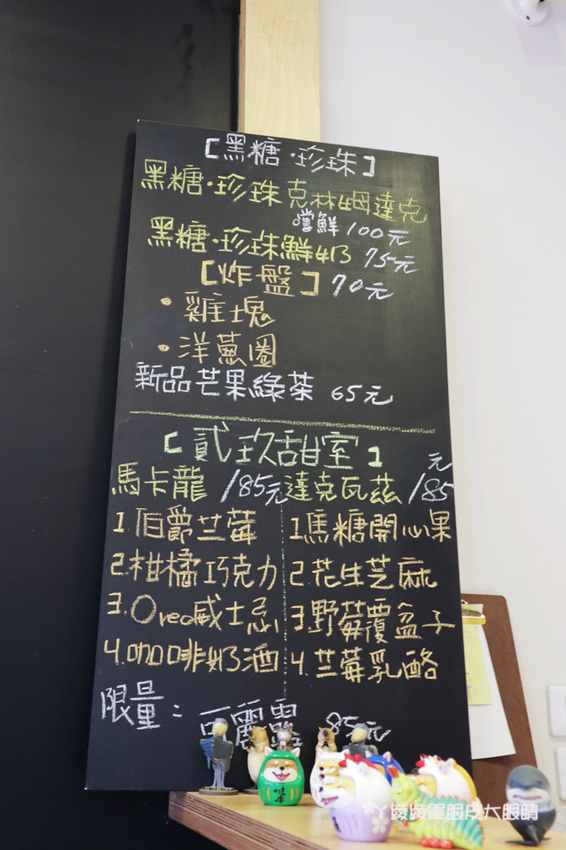 [黑糖·珍珠]
黑糖·珍珠克林姆達克
嚐鮮 100元
黑糖·珍珠鮮奶 75元
[炸盤] 70元
·雞塊
·洋蔥圈
新品芒果綠茶 65元
[貳玖甜室]
馬卡龍 /85元 達克瓦茲 /85元
1.伯爵苎莓 1.焦糖開心果
2.柑橘巧克力 2.花生芝麻
3.Oreo威士忌 3.野莓覆盆子
4.咖啡奶酒 4.苎莓乳酪
限量: 可麗露 85元
丫綾綾單眼皮大眼睛